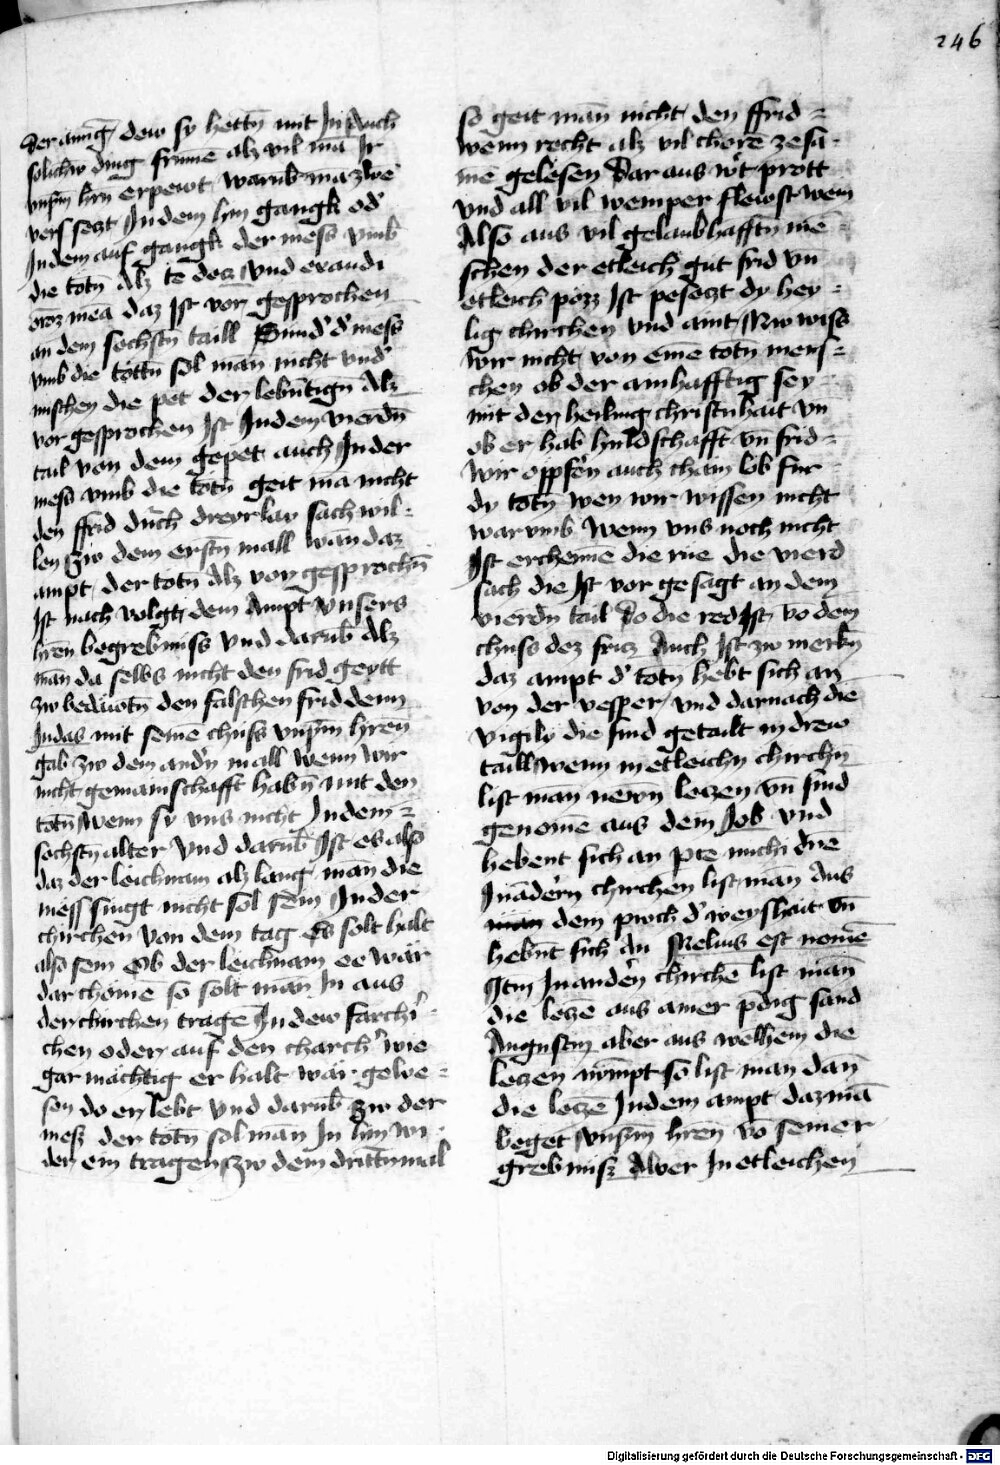 246
der ainig dew sy hettn mit In durch
solichw ding frumē alz vil mā Ir
vnsm hrn erpewt warūb ma zwē
vers setzt Indem hin gangk od'
Indem auf gangk der mess vmb
die totn Alz te decz vnd exaudi
oroz meā daz Ist vor gesprochen
an dem sechstn taill Sund' d' mess
vmb die tottn sol man nicht vnd'
mischen die pet der lebntign Alz
vor gesprochen Ist Indem vierdn
tail von dem gepet auch Inder
mess vmb die totn geit mā nicht
den ffrid durch dreyrlay sach wil-
len Zw dem erstn mall wan daz
ampt der totn Alz vor gesprochn
Ist nach volgt dem Ampt vnsers
hrēn begrebnuss vnd darūb Alz
man da selbs nicht den frid geytt
zw bedäwtn den falschen frid denn
Judas mit seinē chuss vnsm hren
gab zw dem andn mall wenn wir
nicht gemainschafft habn mit den
totn wenn sy vns nicht Indem-
sechstn alter vnd darūb Ist es also
daz der leichnam alz lang man die
mess singt nicht sol sein Inder
chirchen von dem tag Es solt halt
also sein Ob der leichnam ee wär
dar chomē so solt man In aus
der chirchen tragē Indew farchi-
chen oder auf den charch'
gar mächtig er halt wär gewe-
sen do er lebt vnd darūb zw der
mess der totn sol man In hin wi-
der ein tragen zw dem drittn mal
so geit man nicht den ffrid-
wenn recht alz vil chorē zesā-
me gelesen Daraus w't prott
vnd all vil wemper flewst wein
Also aus vil gelaubhafftn mē-
schen der etleich gut sind vn
etleich pozz Ist pesetzt dy hey-
lig chirchen vnd amt Nw wiss
wir nicht von einē totn mens-
chen ob der amhafftig sey
mit der heiling christnhait vn
ob er hab huldschafft vn frid-
wir oppfern auch chain lob fur
dy totn wen wir wissen nicht
warvmb wenn vns noch nicht
Ist erchenne die rüe die vierd
sach die Ist vor gesagt an dem
vierdn tail do die red Ist vo dem
chuss dez fricz Auch Ist zw merkn
daz ampt d' totn hebt sich an
von der vesper vnd darnach die
vigily die sind getailt in drew
taill wenn in etleichn chirchn
list man newn leczen vn sind
genomē aus dem Job vnd
hebent sich an pce michi dne
Inādern chirchen list man Aus
man dem puch d' weyshait vn
hebnt sich An Melius est nomē
Itm Inandēn chirchē list man
die leczē aus ainer pdig sand
Augustin aber aus welhem die
leczen nympt so list man dan
die leczē Indem ampt daz mā
beget vnsrm hrēn vo seiner
grebnuss Aber In etleichen
Digitalisierung gefördert durch die Deutsche Forschungsgemeinschaft - DFG